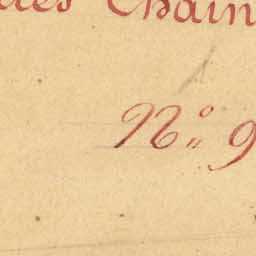 des Chain
No. 9